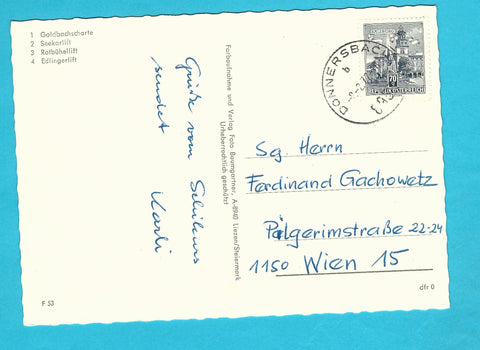 1 Goldbachscharte
2 Seekarlift
3 Rotbühellift
4 Edlingerlift
Grüße vom Schikurs
sendet Karli
Farbaufnahme und Verlag Foto Baumgartner, A-8940 Liezen/Steiermark
Urheberrechtlich geschützt
DONNERSBACH
REPUBLIK ÖSTERREICH
Sg. Herrn
Ferdinand Gachowetz
Pilgerimstraße 22-24
1150 Wien 15
F 53
dfr 0